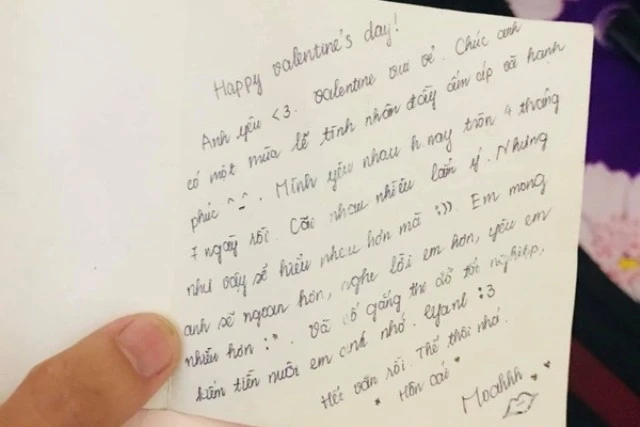 Happy valentine's day!
Anh yêu <3. Valentine vui vẻ. Chúc anh
có một mùa lễ tình nhân đầy ấm áp và hạnh
phúc ^_^. Mình yêu nhau h nay tròn 4 tháng
7 ngày rồi. Cãi nhau nhiều lắm ý. Nhưng
như vậy sẽ hiểu nhau hơn mà :))). Em mong
anh sẽ ngoan hơn, nghe lời em hơn, yêu em
nhiều hơn :*. Và cố gắng thi đỗ tốt nghiệp,
kiếm tiền nuôi em nhớ. :3
Hết văn rồi. Thế thôi nhớ.
Hôn cái
Moahhh